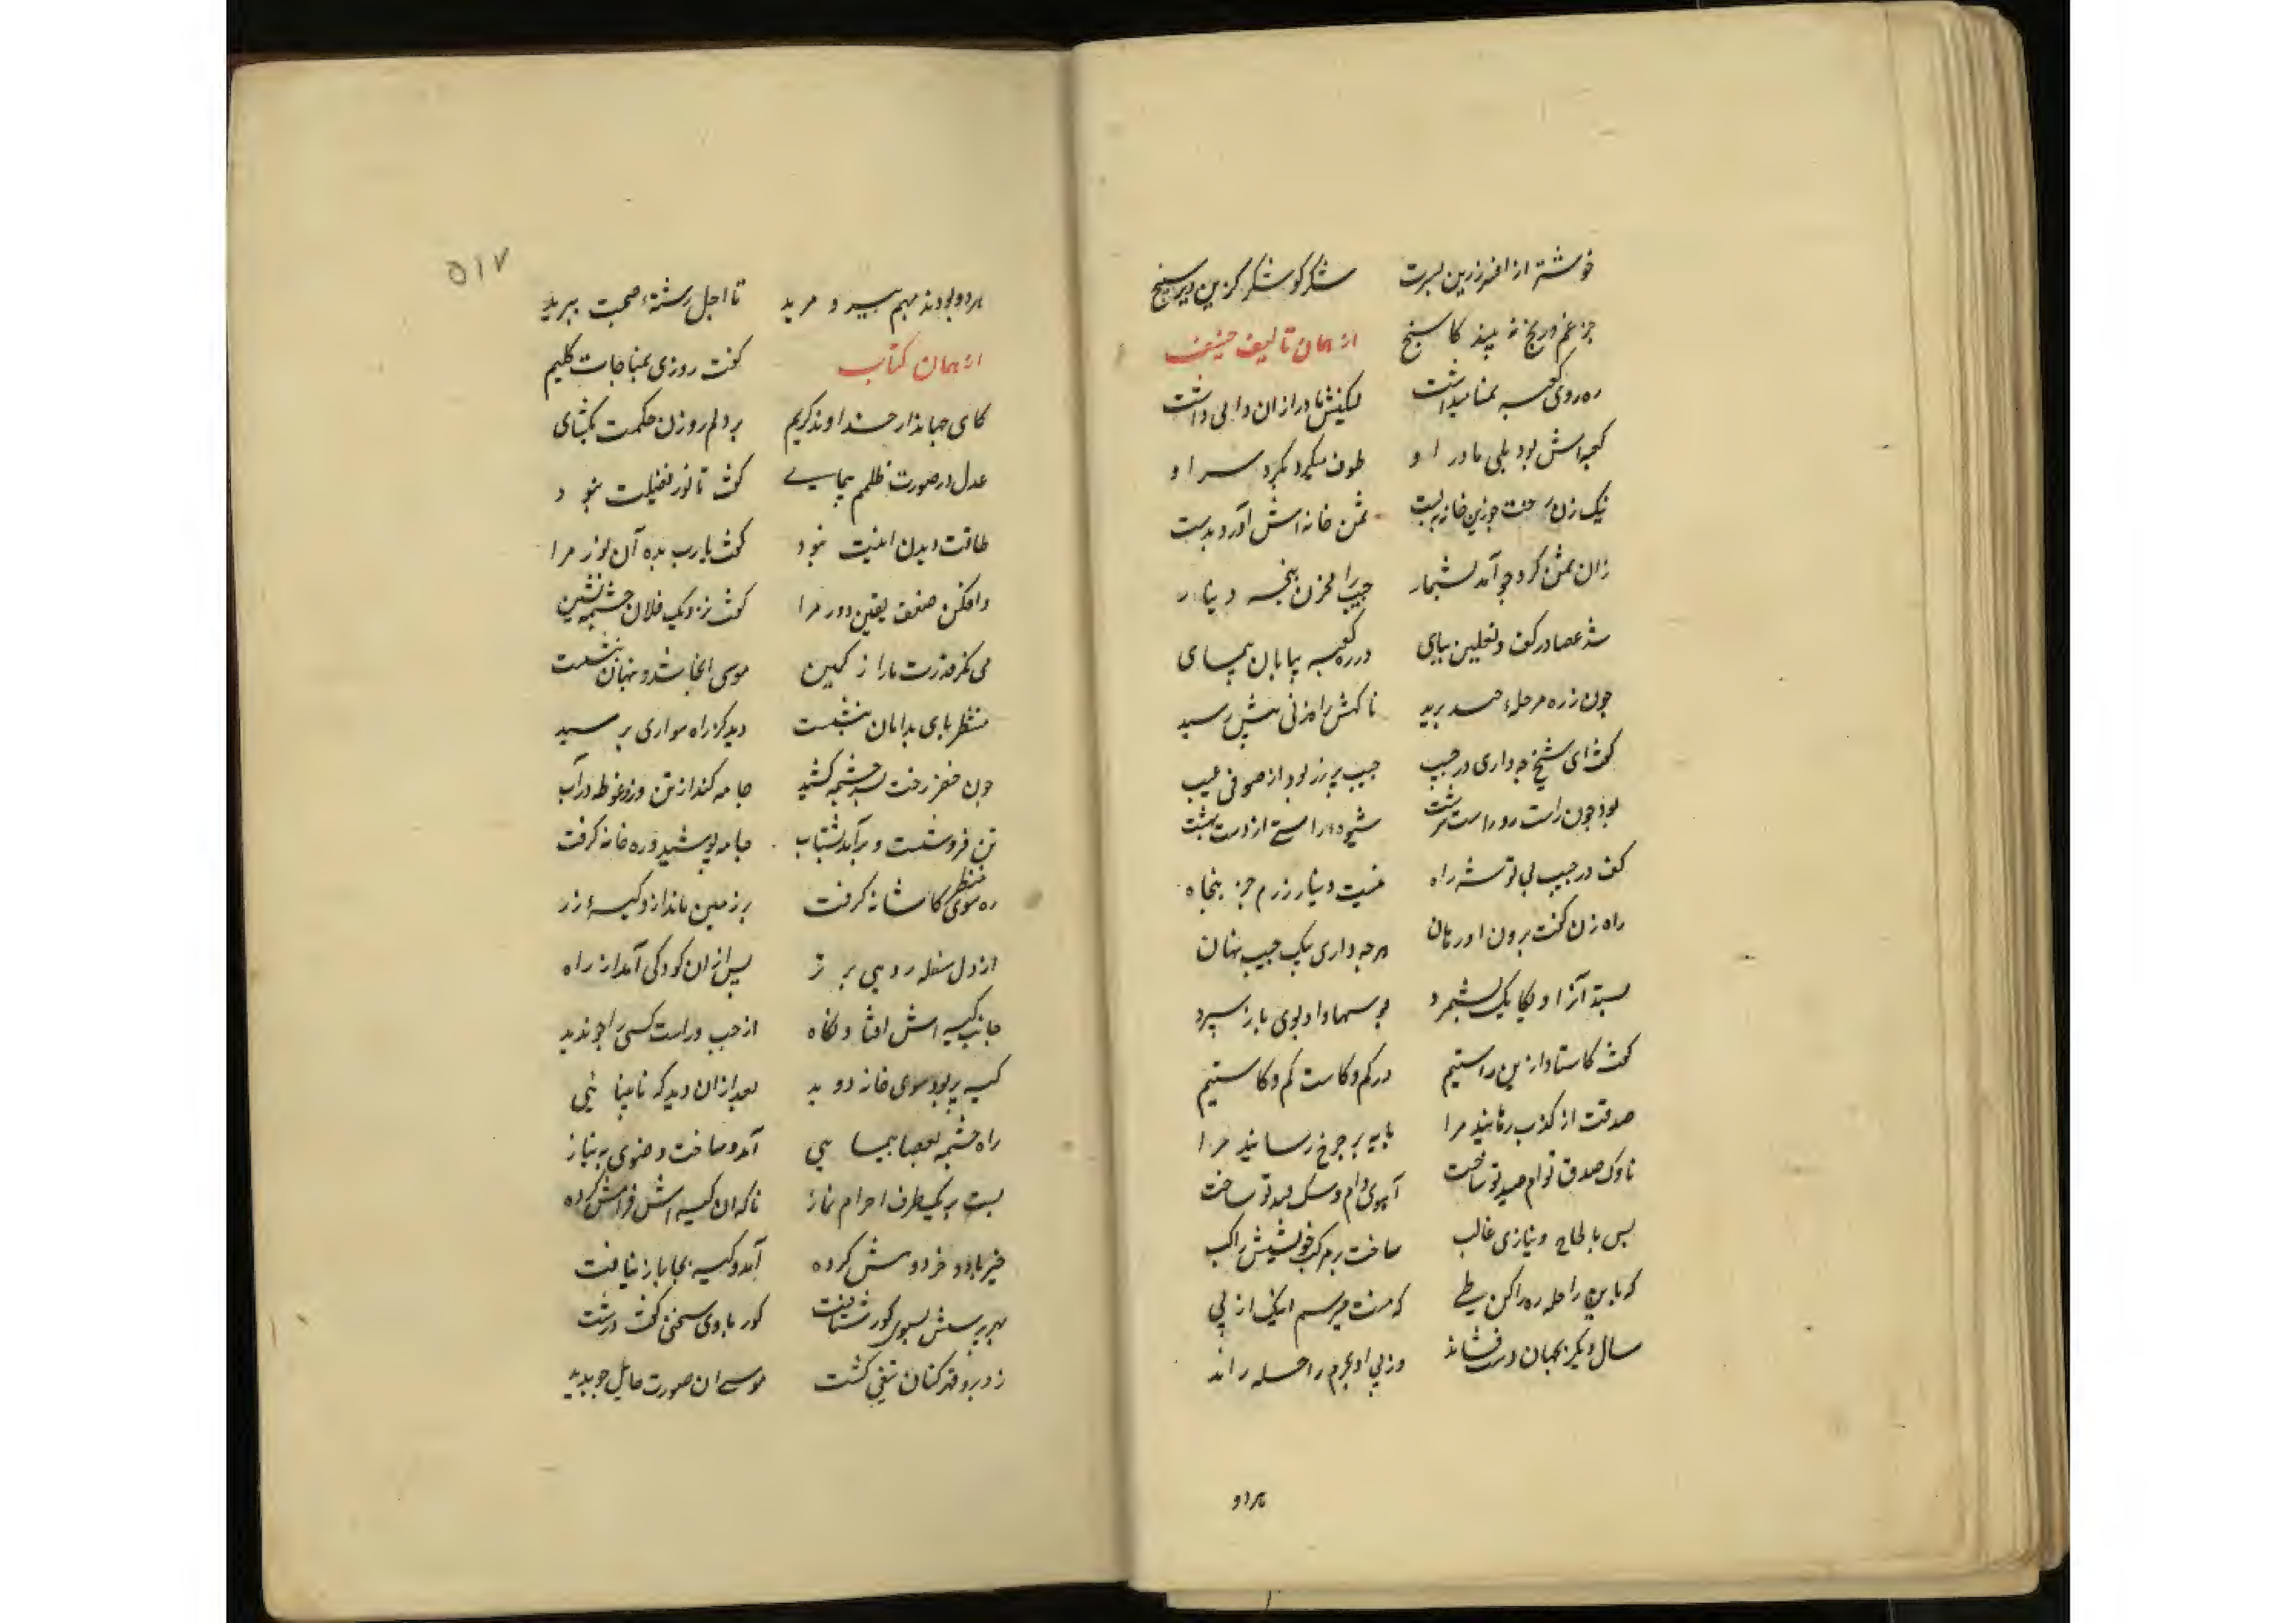 خوشتر از افسر زرین بسرت شکر کو شکر کزین دیر سپنج
جز غم و رنج نه بیند کاسنج از همان تألیف حنیف
ره روی کعبه تمنا میداشت لیکنش مادر ازان وا می داشت
کعبه اش بود بلی مادر او طوف میکرد بگرد سر او
نیک زن رخت چو زین خانه ببست ثمن خانه اش آورد بدست
زان ثمن کرد چو آمد بشمار جیب را مخزن پنجه دینار
شد عصا در کف و نعلین بپای در ره کعبه بیابان پیمای
چون ز ره مرحلهٔ چند برید ناکهش راه زنی پیش رسید
کفت ای شیخ چه داری در جیب جیب پر زر بود از صوفی عیب
بود چون راست رو و راست سرشت شیوه راستی از دست نهشت
کفت در جیب پی توشه راه نیست دینار زرم جز پنجاه
راه زن کفت برون اور هان هر چه داری بیک جیب نهان
بستد آنرا و یکایک بشمرد بوسها داد و بوی باز سپرد
کفت کاستاد ازین راستیم در کم و کاست کم و کاستیم
صدقت از کذب رهانید مرا پایه بر چرخ رسانید مرا
ناوک صدق توام صید تو ساخت آهوی دام و سک قید تو ساخت
پس بالحاح و نیازی غالب ساخت بر مرکب خویشش راکب
که باین راحله ره را کن طی که منت میرسم اینک از پی
سال دیکر بجهان دست فشاند وز پی او بحرم راحله راند
هر دو
۵۱۷
هر دو بودند بهم پیر و مرید تا اجل رشتهٔ صحبت ببرید
از همان کتاب کفت روزی بمناجات کلیم
کای جهاندار خداوند کریم بر دلم روزن حکمت بکشای
عدل در صورت ظلمم بنمای کفت تا نور یقینت نبود
طاقت دیدن اینت نبود کفت یارب بده آن نور مرا
وافکن ضعف یقین دور مرا کفت نزدیک فلان چشمه نشین
می نکر قدرت ما را ز کمین موسی آنجا شد و پنهان بنشست
منتظر پای بدامان بنشست دید کز راه سواری برسید
چون خضر رخت بسر چشمه کشید جامه کند از تن و زد غوطه در آب
تن فروشست و برآمد بشتاب جامه پوشید و ره خانه کرفت
ره سوی منظر کاشانه کرفت بر زمین ماند ازو کیسهٔ زر
از دل سفله رو می پر تر پس ازان کودکی آمد از راه
جانب کیسه اش افتاد نکاه از چپ و راست کسی را چو ندید
کیسه بربود سوی خانه دوید بعد ازان دید که نابینائی
راه چشمه بعصا پیمائی آمد و ساخت وضوی به نیاز
بست بر یکطرف احرام نماز ناکه ان کیسه اش فراموش کرده
خیرباد خرد و هوش کرده آمد و کیسه بجا باز نیافت
بهر پرسش بسوی کور شتافت کور با وی سخنی کفت درشت
زد برو قهرکنان تیغی کشت موسی ان صورت هایل چو بدید